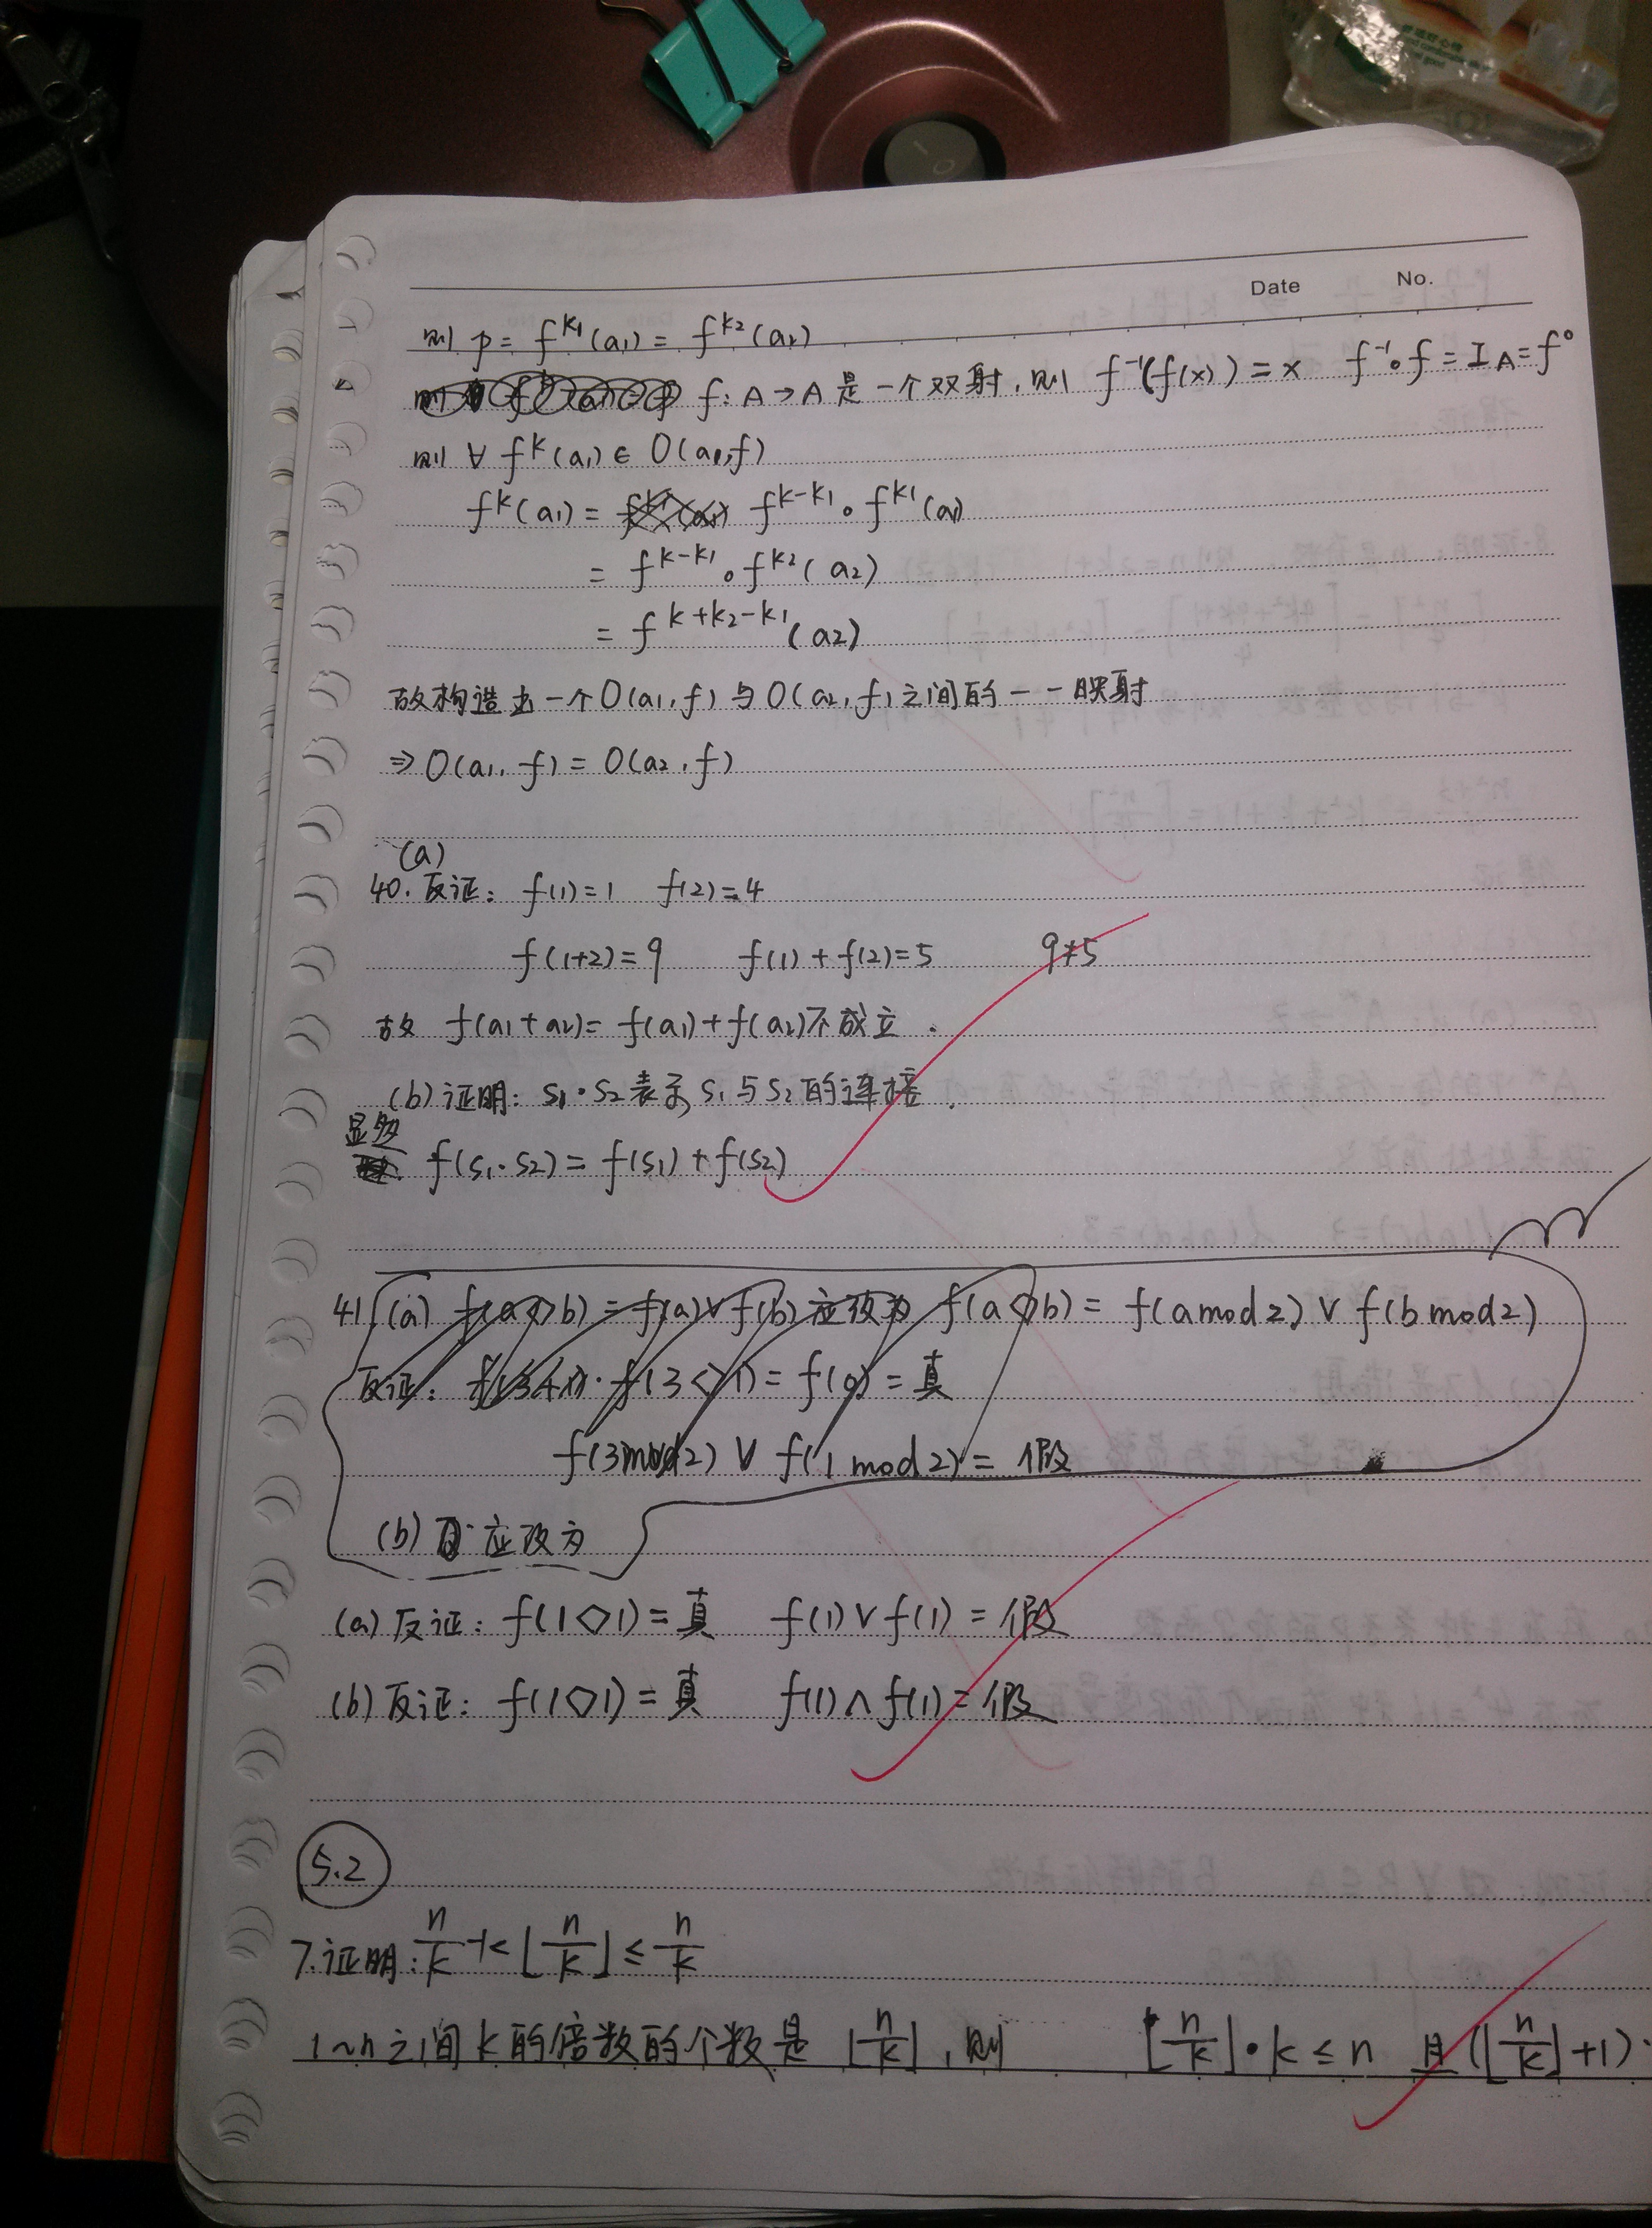 Date No.
则 p = f^{k1}(a1) = f^{k2}(a2)
f: A→A 是一个双射, 则 f⁻¹(f(x)) = x f⁻¹∘f = I_A = f⁰
则 ∀ f^k(a1) ∈ O(a1,f)
f^k(a1) = f^{k-k1}∘f^{k1}(a1)
= f^{k-k1}∘f^{k2}(a2)
= f^{k+k2-k1}(a2)
故构造出一个O(a1,f)与O(a2,f)之间的一一映射
⇒ O(a1,f) = O(a2,f)
(a)
40. 反证: f(1)=1 f(2)=4
f(1+2)=9 f(1)+f(2)=5 9≠5
故 f(a1+a2)=f(a1)+f(a2)不成立.
(b) 证明: s1·s2表示s1与s2的连接.
显然
f(s1·s2)=f(s1)+f(s2)
41 (a) f(a◇b)=f(a)∨f(b) 应改为 f(a◇b)=f(a mod 2)∨f(b mod 2)
反证: f(3◇1)=f(0)=真
f(3mod2)∨f(1mod2)=假
(b) 应改为
(a) 反证: f(1◇1)=真 f(1)∨f(1)=假
(b) 反证: f(1◇1)=真 f(1)∧f(1)=假
5.2
7. 证明: n/k -1< ⌊n/k⌋ ≤ n/k
1~n之间k的倍数的个数是 ⌊n/k⌋, 则 ⌊n/k⌋·k ≤ n 且(⌊n/k⌋+1)·